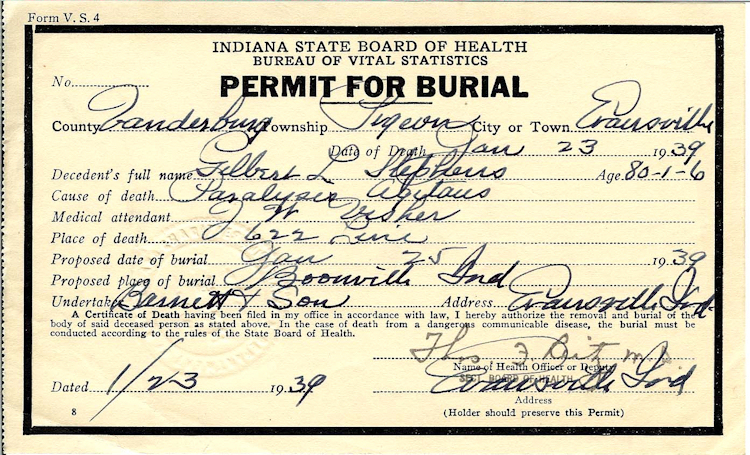 Form V. S. 4
INDIANA STATE BOARD OF HEALTH
BUREAU OF VITAL STATISTICS
No.
PERMIT FOR BURIAL
County Vanderburg Township Pigeon City or Town Evansville
Date of Death Jan 23 1939
Decedent's full name Gilbert L Stephens Age 80-1-6
Cause of death Paralysis Agitans
Medical attendant J W Visher
Place of death 622 Line
Proposed date of burial Jan 25 1939
Proposed place of burial Boonville Ind
Undertaker Barnett & Son Address Evansville Ind.
A Certificate of Death having been filed in my office in accordance with law, I hereby authorize the removal and burial of the
body of said deceased person as stated above. In the case of death from a dangerous communicable disease, the burial must be
conducted according to the rules of the State Board of Health.
Thos M.D.
Name of Health Officer or Deputy
BOARD OF HEALTH
Evansville Ind
Dated 1/23 1939
Address
8
(Holder should preserve this Permit)